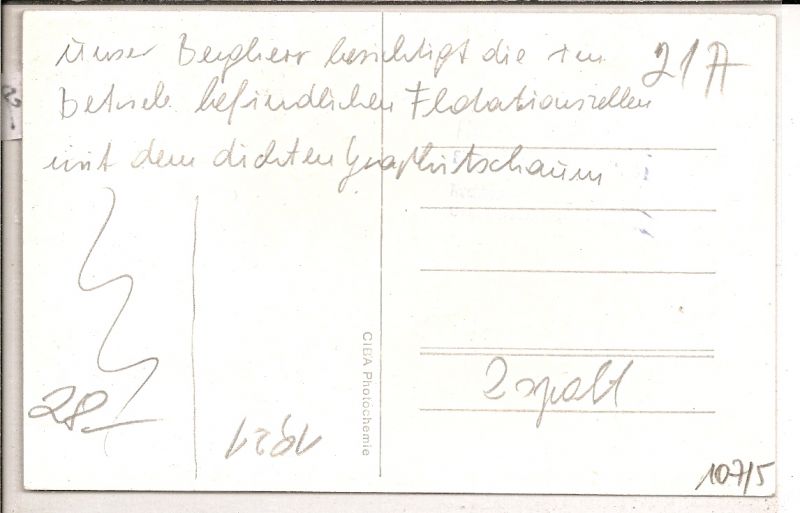 Unser Bergherr besichtigt die im 217
Betrieb befindlichen Flotationszellen
mit dem dichten Graphitschaum
CIBA Photochemie
2 spalt
28
107/5